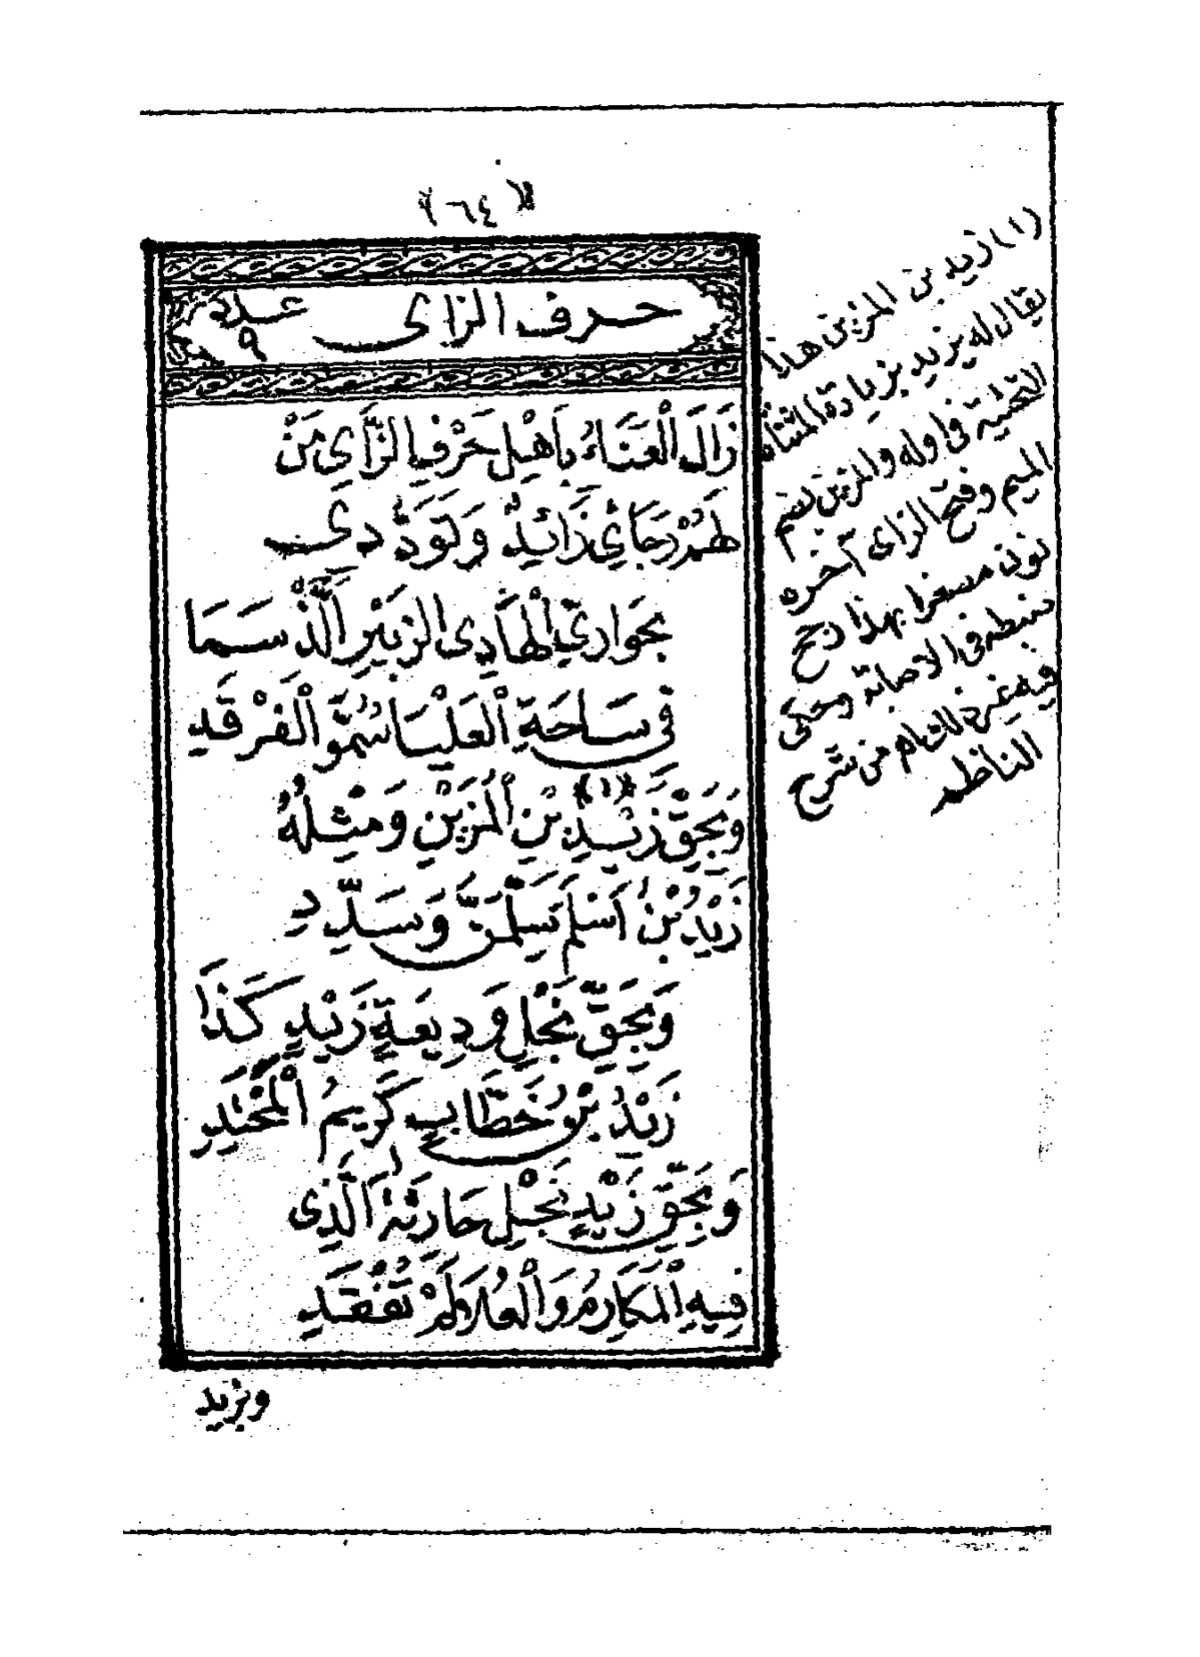 (٦٤)
حرف الزاى عدة ٩
زَالَ الْعَنَاءُ بِأَهْلِ حَرْفِ الزَّايِ مَنْ
لَهُمْ رَجَائِي زَائِدٌ وَتَوَدُّدِى
بِجِوَارِيِ الْهَادِى الزُبَيْرِ الَّذْ سَمَا
فِى سَاحَةِ الْعَلْيَا سُمُوَّ الْفَرْقَدِ
وَبِحَقِّ زَيْدِ (١) بْنِ الْمُزَيْنِ وَمِثْلُهُ
زَيْدُ بْنُ اَسْلَمَ سَلِّمَنَّ وَسَدِّدِ
وَبِحَقِّ نَجْلِ وَدِيعَةٍ زَيْدٍ كَذَا
زَيْدُ بْنُ خَطَّابٍ كَرِيمُ الْمَحْتِدِ
وَبِحَقِّ زَيْدٍ نَجْلِ حَارِثَةَ الَّذِى
فِيهِ الْمَكَارِمُ وَالْعُلَا لَمْ تُفْقَدِ
وبزيد
(١) زيد بن المزين هذا
يقال له يزيد بزيادة المثناة
التحتية فى اوله والمزين بضم
الميم وفتح الزاى آخره
نون مصغرا بهذا رجح
ضبطه فى الاصابة وحكى
فيه غير ذلك من شرح
الناظم